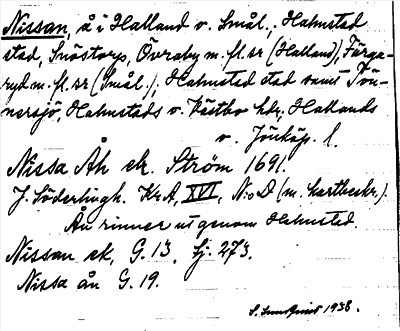 Nissan, å i Halland o. Smål.; Halmstad
stad, Snöstorp, Övraby m. fl. sr (Halland), Färga-
ryd m. fl. sr (Smål.); Halmstad stad samt Tön-
nersjö, Halmstads o. Västbo hdr, Hallands
o. Jönköp. l.
Nissa Åh elr. Ström 1691.
J. Söderlingh. KrA, XVI, N:o D (m. kartbeskr.).
Ån rinner ut genom Halmstad.
Nissan ek, G. 13. Lj. 273.
Nissa ån G. 19.
S. Sundquist 1938.